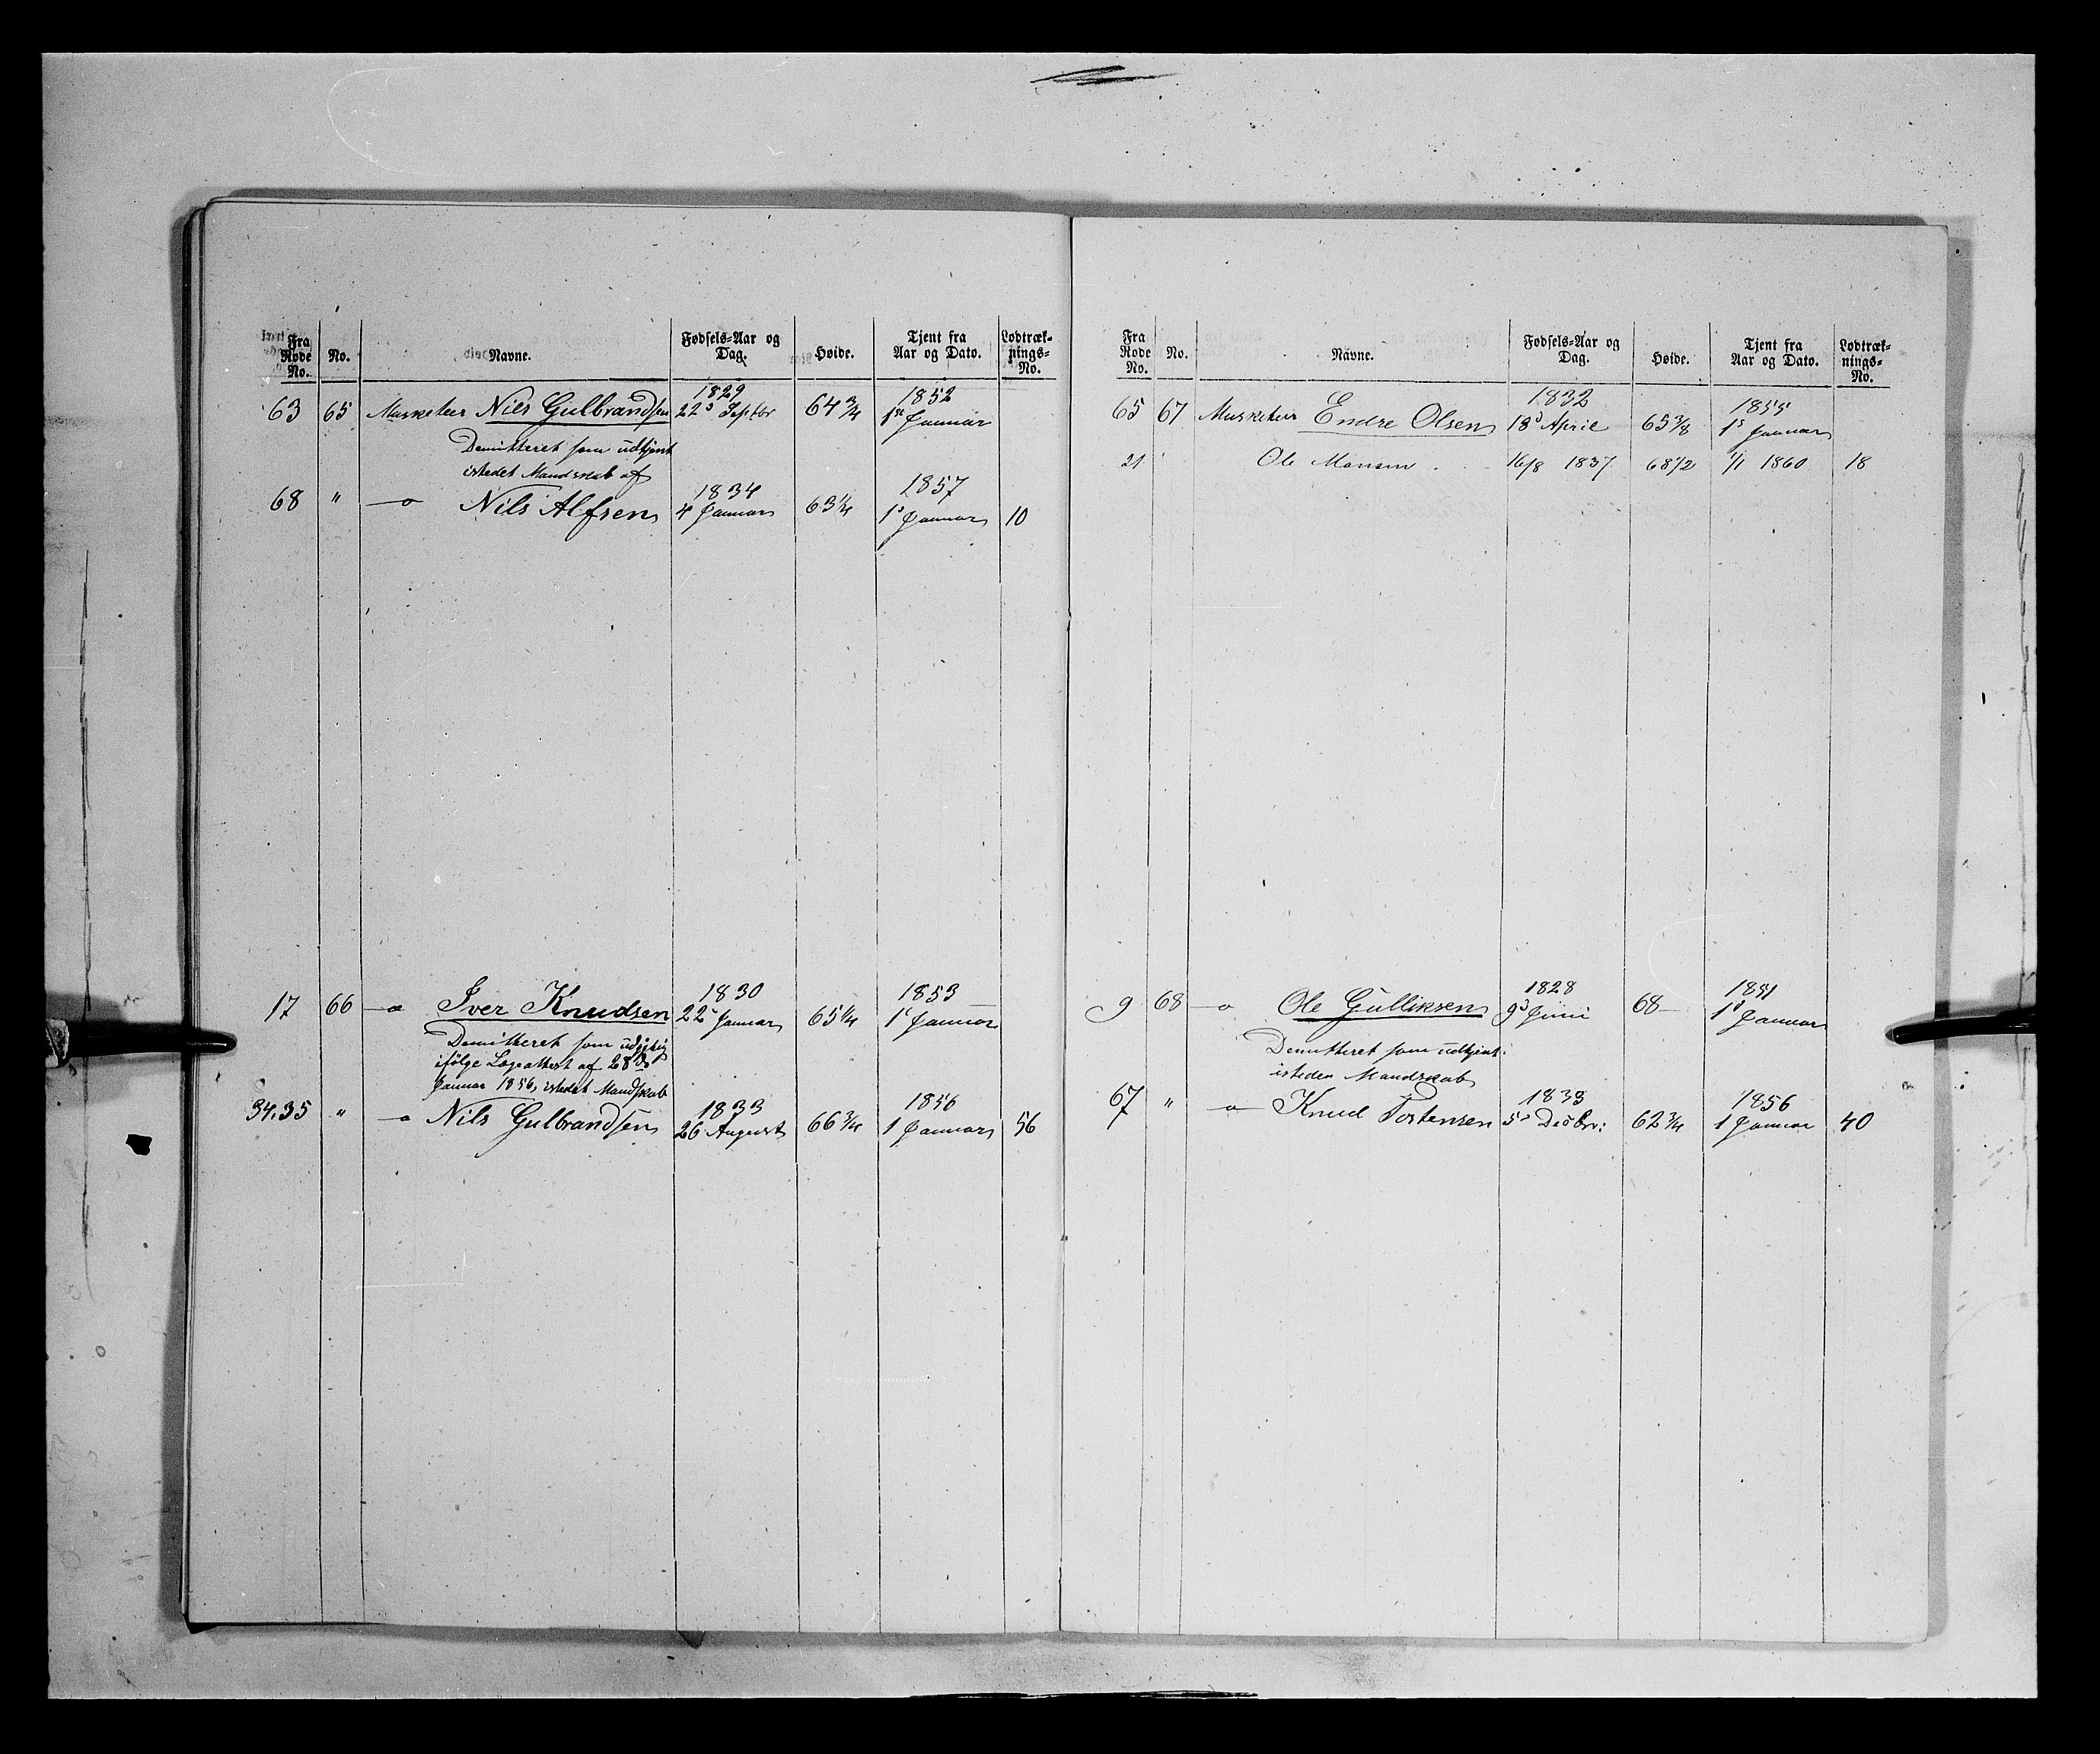 Fra Rode No. No. Navne. Fødsels-Aar og Dag. Høide. Tjent fra Aar og Dato. Lodtræk-nings-No.
1829 1852
63 65 Musketeer Nils Gulbrandsen 22d Septbr 64 3/4 1ste Januar
Demitteret som udtjent
istedet Mandskab af
1834 1857
68 " —o Nils Alfsen 4 Januar 63 1/4 1d Januar 10
1830 1853
17 66 —o Iver Knudsen 22 Januar 65 1/4 1 Januar
Demitteret som udygtig
ifölge Lægeattest af 28de
Januar 1856, istedet Mandskab
1833 1856
34.35 " —o Nils Gulbrandsen 26 August 66 3/4 1 Januar 56
Fra Rode No. No. Navne. Fødsels-Aar og Dag. Høide. Tjent fra Aar og Dato. Lodtræk-nings-No.
1832 1855
65 67 Musketeer Endre Olsen 18d April 65 3/8 1d Januar
21 Ole Monsen 16/8 1837 68 1/2 1/1 1860 18
1828 1851
9 68 —o Ole Gulliksen 9d Juni 68 — 1d Januar
Demitteret som udtjent
isteden Mandskab
1833 1856
67 " —o Knud Tostensen 5d Decbr: 62 3/4 1 Januar 40